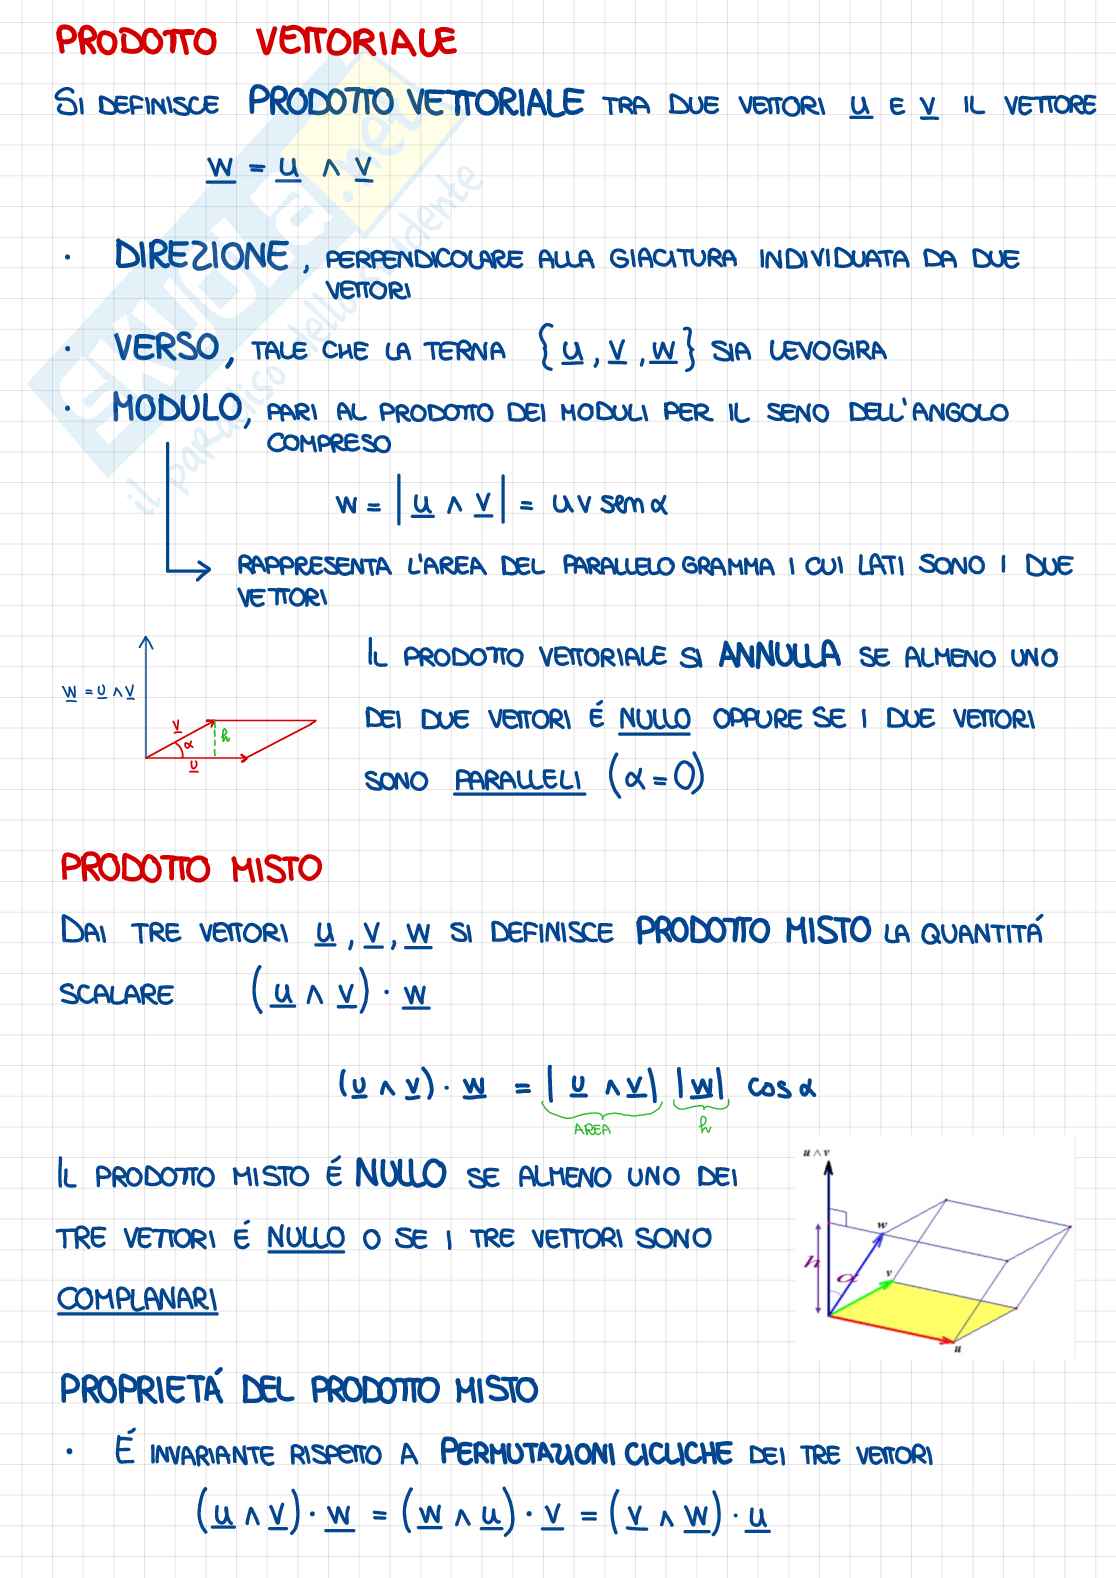 PRODOTTO VETTORIALE
SI DEFINISCE PRODOTTO VETTORIALE TRA DUE VETTORI u E v IL VETTORE
w = u ∧ v
· DIREZIONE, PERPENDICOLARE ALLA GIACITURA INDIVIDUATA DA DUE
VETTORI
· VERSO, TALE CHE LA TERNA {u, v, w} SIA LEVOGIRA
· MODULO, PARI AL PRODOTTO DEI MODULI PER IL SENO DELL'ANGOLO
COMPRESO
w = |u ∧ v| = uv sen α
RAPPRESENTA L'AREA DEL PARALLELOGRAMMA I CUI LATI SONO I DUE
VETTORI
w = u ∧ v
v
α
h
u
IL PRODOTTO VETTORIALE SI ANNULLA SE ALMENO UNO
DEI DUE VETTORI É NULLO OPPURE SE I DUE VETTORI
SONO PARALLELI (α = 0)
PRODOTTO MISTO
DAI TRE VETTORI u, v, w SI DEFINISCE PRODOTTO MISTO LA QUANTITÁ
SCALARE (u ∧ v) · w
(u ∧ v) · w = |u ∧ v| |w| cos α
AREA h
IL PRODOTTO MISTO É NULLO SE ALMENO UNO DEI
TRE VETTORI É NULLO O SE I TRE VETTORI SONO
COMPLANARI
u ∧ v
w
h
α
v
u
PROPRIETÁ DEL PRODOTTO MISTO
· É INVARIANTE RISPETTO A PERMUTAZIONI CICLICHE DEI TRE VETTORI
(u ∧ v) · w = (w ∧ u) · v = (v ∧ w) · u
SKUOLA.net
il paradiso dello studente